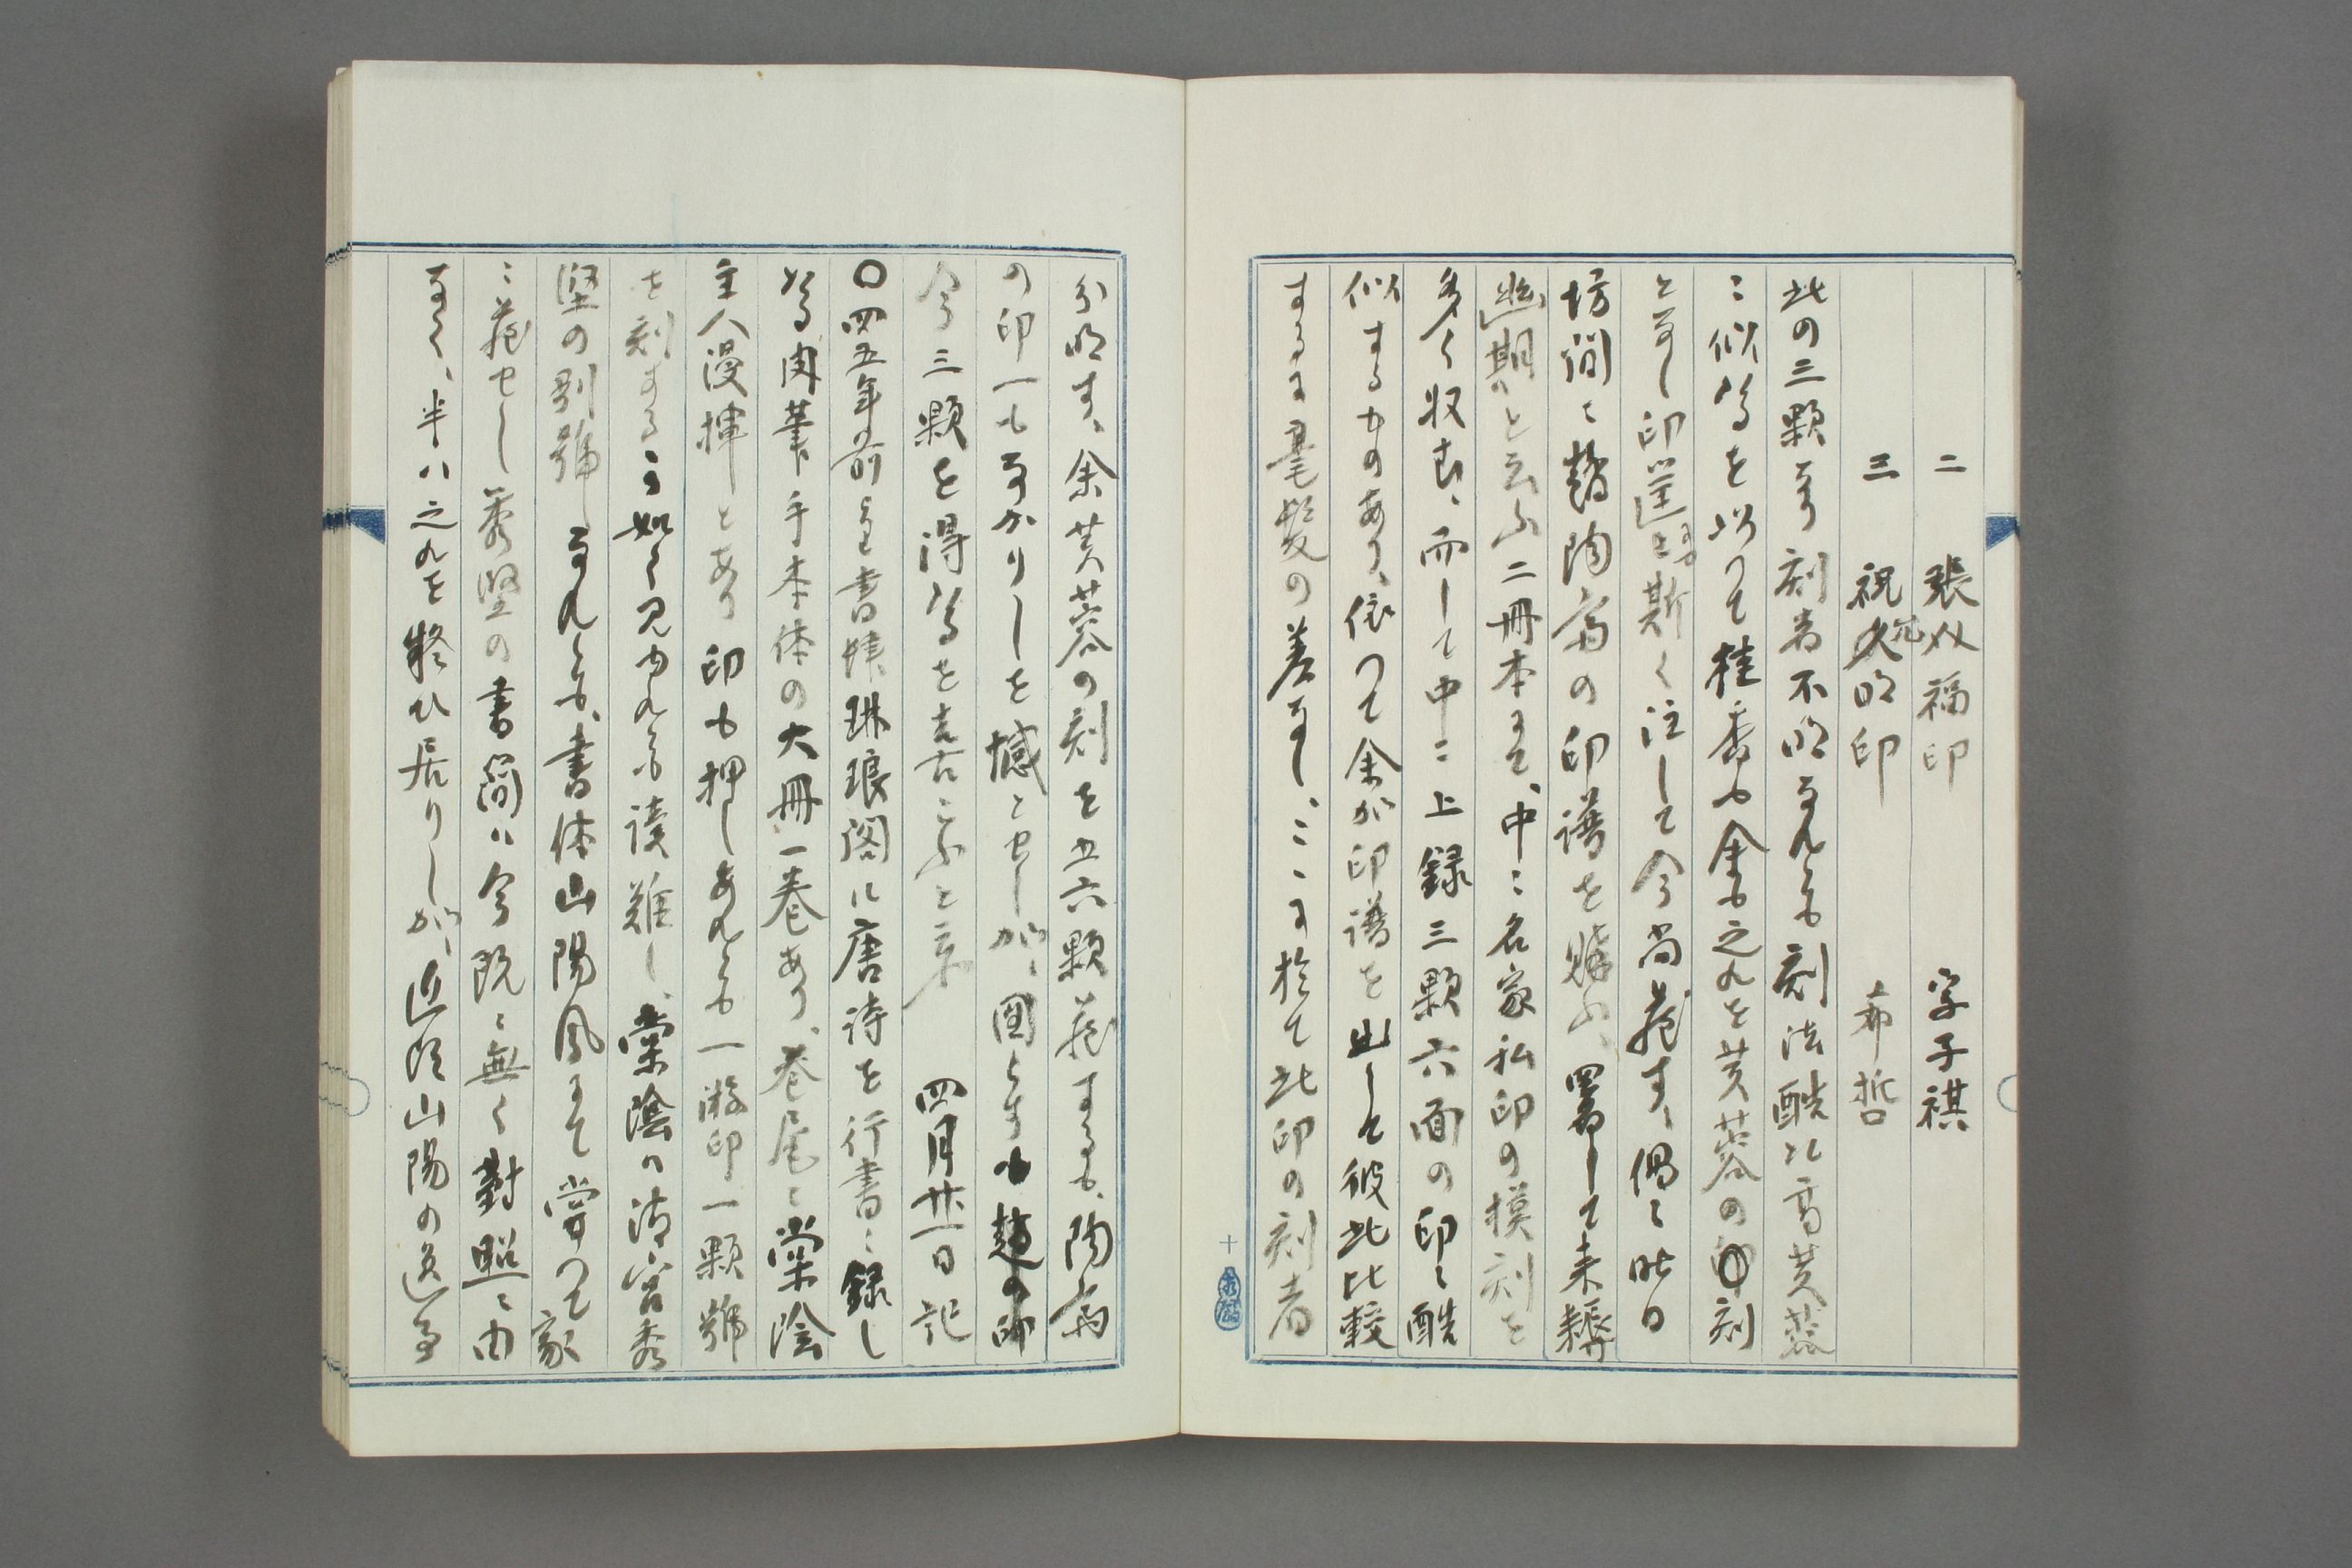 二 張奴福印 字子祺
三 祝允明印 希哲
此の三顆なり刻者不明なれども刻法酷だ高芙蓉
ニ似たるを以つて桂香も余も之れを芙蓉の刻
となし印箋にも斯く注して今尚蔵す、偶々昨日
坊間に静陶斎の印譜を購ふ、署して未耨
幽期と云ふ二冊本にて、中ニ名家私印の模刻を
多く収む、而して中ニ上録三顆六面の印に酷
似するものあり、依つて余が印譜を出して彼此比較
するに毫髪の差なし、ここに於て此印の刻者
分明す、余芙蓉の刻を五六顆蔵するも、陶斎
の印一もなかりしを憾とせしが、図らずも
今三顆を得たるを喜ぶ 四月廿一日記
〇四五年前にも書肆琳琅閣に唐詩を行書に録し
たる肉筆手本体の大冊一巻あり、巻尾に棠陰
主人漫揮とあり印も押しあれども一游印一顆号
を刻するが如く見ゆれども読難し、棠陰は清宮秀
堅の別号なれども、書体山陽風にて嘗つて家
ニ蔵せし秀堅の書簡は今既に無く対照に由
なく、半ハ之れを疑ひ居りしが、近頃山陽の送り
十